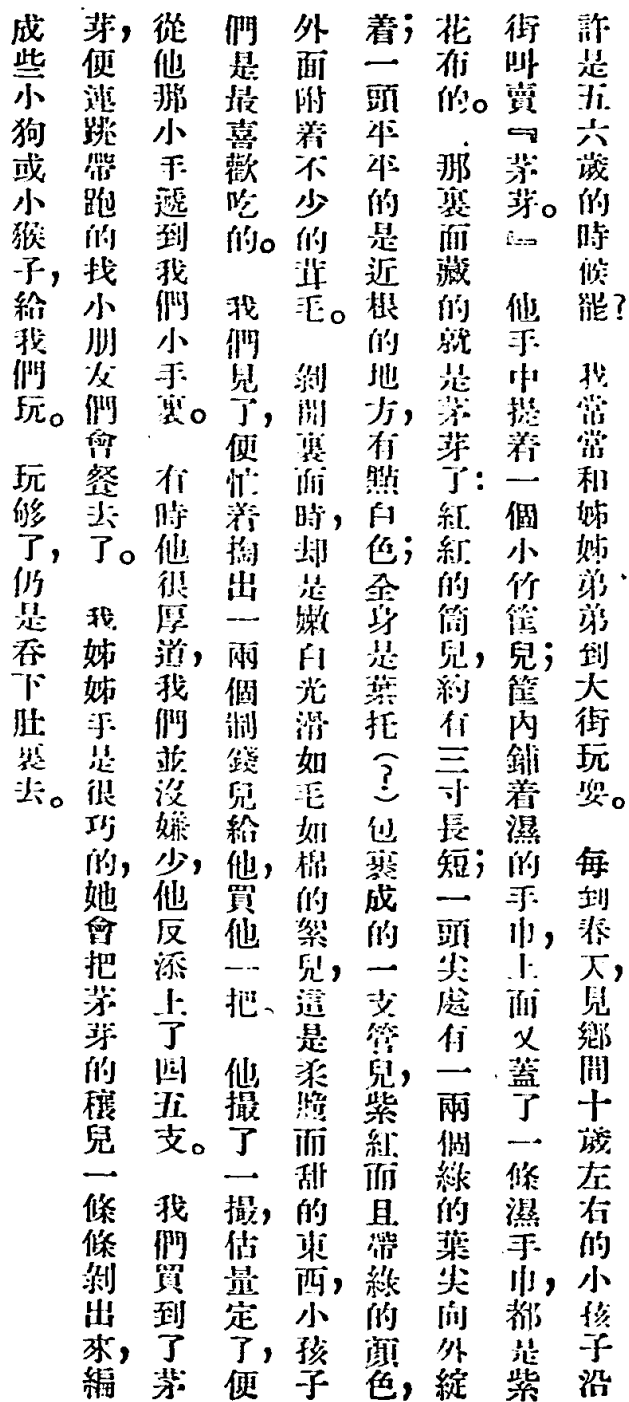 許是五六歲的時候罷？ 我常常和姊姊弟弟到大街玩耍。 每到春天，見鄉間十歲左右的小孩子沿
街叫賣『茅芽。』 他手中提着一個小竹筐兒；筐內鋪着濕的手巾，上面又蓋了一條濕手巾，都是紫
花布的。 那裏面藏的就是茅芽了：紅紅的筒兒，約有三寸長短；一頭尖處有一兩個綠的葉尖向外綻
着；一頭平平的是近根的地方，有點白色；全身是葉托（？）包裹成的一支管兒，紫紅而且帶綠的顏色，
外面附着不少的茸毛。 剝開裏面時，却是嫩白光滑如毛如棉的絮兒，這是柔膩而甜的東西，小孩子
們是最喜歡吃的。 我們見了，便忙着掏出一兩個制錢兒給他，買他一把、 他撮了一撮，估量定了，便
從他那小手遞到我們小手裏。 有時他很厚道，我們並沒嫌少，他反添上了四五支。 我們買到了茅
芽，便連跳帶跑的找小朋友們會餐去了。 我姊姊手是很巧的，她會把茅芽的穰兒一條條剝出來，編
成些小狗或小猴子，給我們玩。 玩够了，仍是吞下肚裏去。